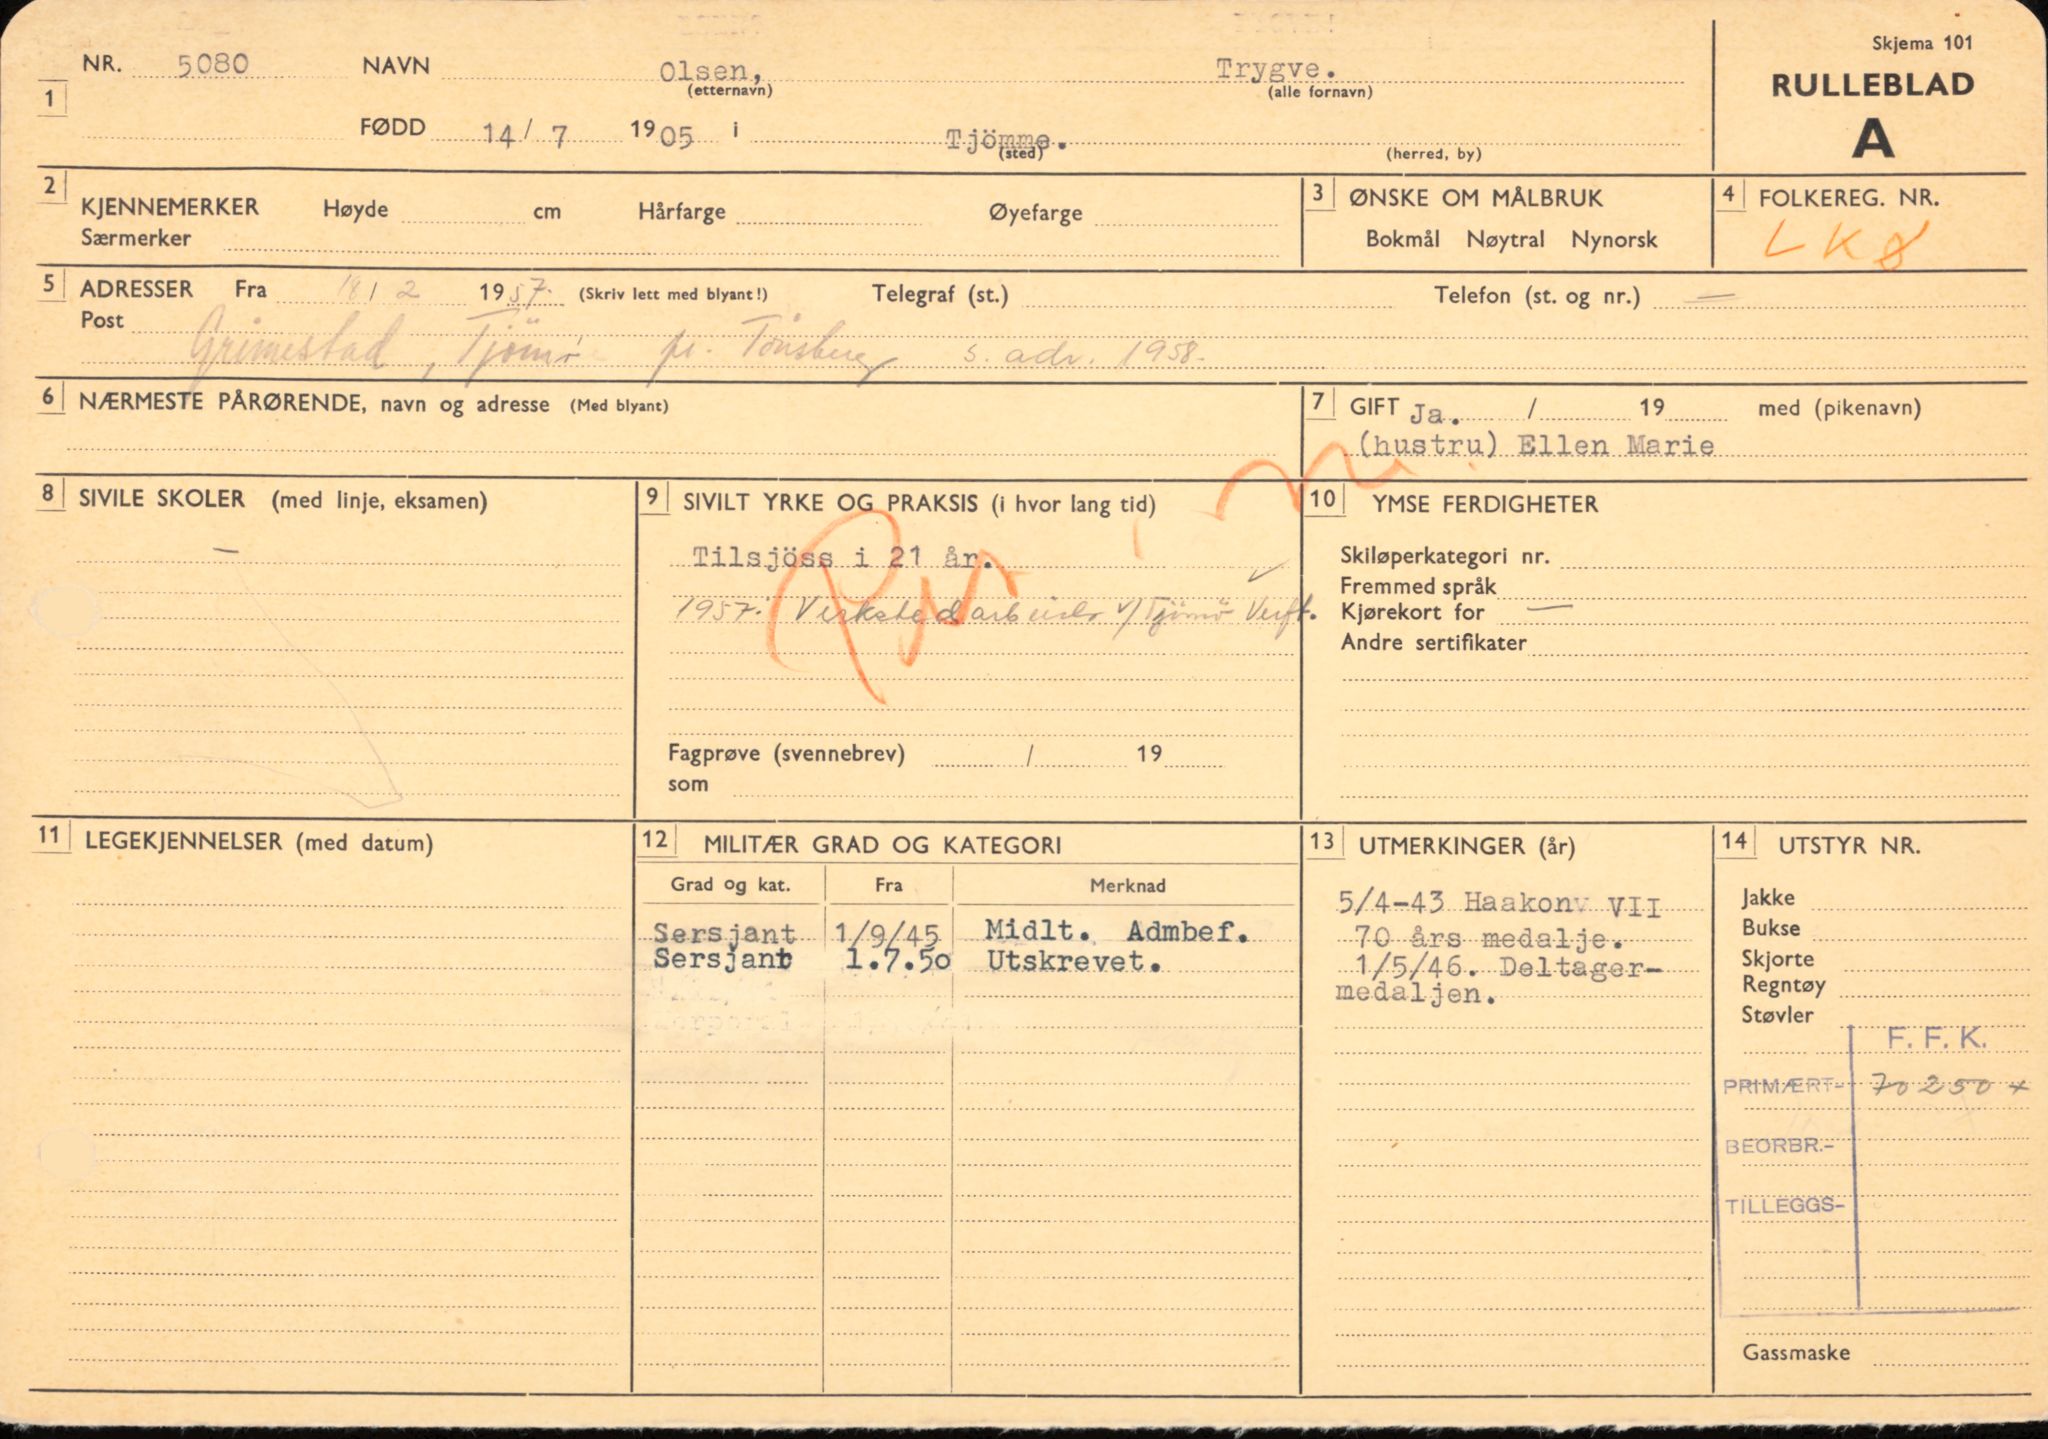 Skjema 101
RULLEBLAD
A
NR. 5080 NAVN Olsen, Trygve.
(etternavn) (alle fornavn)
1
FØDD 14/ 7 1905 i Tjömme.
(sted) (herred, by)
2 KJENNEMERKER Høyde cm Hårfarge Øyefarge
Særmerker
3 ØNSKE OM MÅLBRUK
Bokmål Nøytral Nynorsk
4 FOLKEREG. NR.
LK8
5 ADRESSER Fra 18/2 1957. (Skriv lett med blyant!) Telegraf (st.) Telefon (st. og nr.) —
Post Grimestad, Tjömö pr. Tønsberg s. adr. 1958.
6 NÆRMESTE PÅRØRENDE, navn og adresse (Med blyant)
7 GIFT Ja. / 19 med (pikenavn)
(hustru) Ellen Marie
8 SIVILE SKOLER (med linje, eksamen)
—
9 SIVILT YRKE OG PRAKSIS (i hvor lang tid)
Tilsjöss i 21 år.
1957. Verkstedarbeider v/Tjömö Verft.
Fagprøve (svennebrev) / 19
som
10 YMSE FERDIGHETER
Skiløperkategori nr.
Fremmed språk
Kjørekort for —
Andre sertifikater
11 LEGEKJENNELSER (med datum)
12 MILITÆR GRAD OG KATEGORI
Grad og kat. Fra Merknad
Sersjant 1/9/45 Midlt. Admbef.
Sersjant 1.7.50 Utskrevet.
13 UTMERKINGER (år)
5/4-43 Haakonv VII
70 års medalje.
1/5/46. Deltager-
medaljen.
14 UTSTYR NR.
Jakke
Bukse
Skjorte
Regntøy
Støvler
F. F. K.
PRIMÆRT- 70250 +
BEORBR.-
TILLEGGS-
Gassmaske